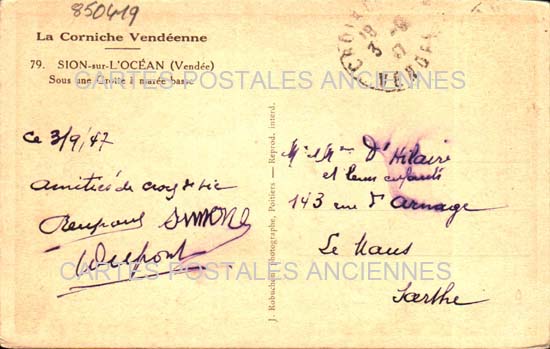 850419
La Corniche Vendéenne
79. SION-sur-L'OCÉAN (Vendée)
Sous une Grotte à marée basse
CARTES POSTALES ANCIENNES
Ce 3/9/47
Amitiés de Croix de Vie
SIMONE
Dupont
J. Robuchon, photographe, Poitiers — Reprod. interd.
18
3 - 9
47
VENDÉE
Mr & Mme D'Hilaire
et leurs enfants
143 rue d'Arnage
Le Mans
Sarthe
CARTES POSTALES ANCIENNES